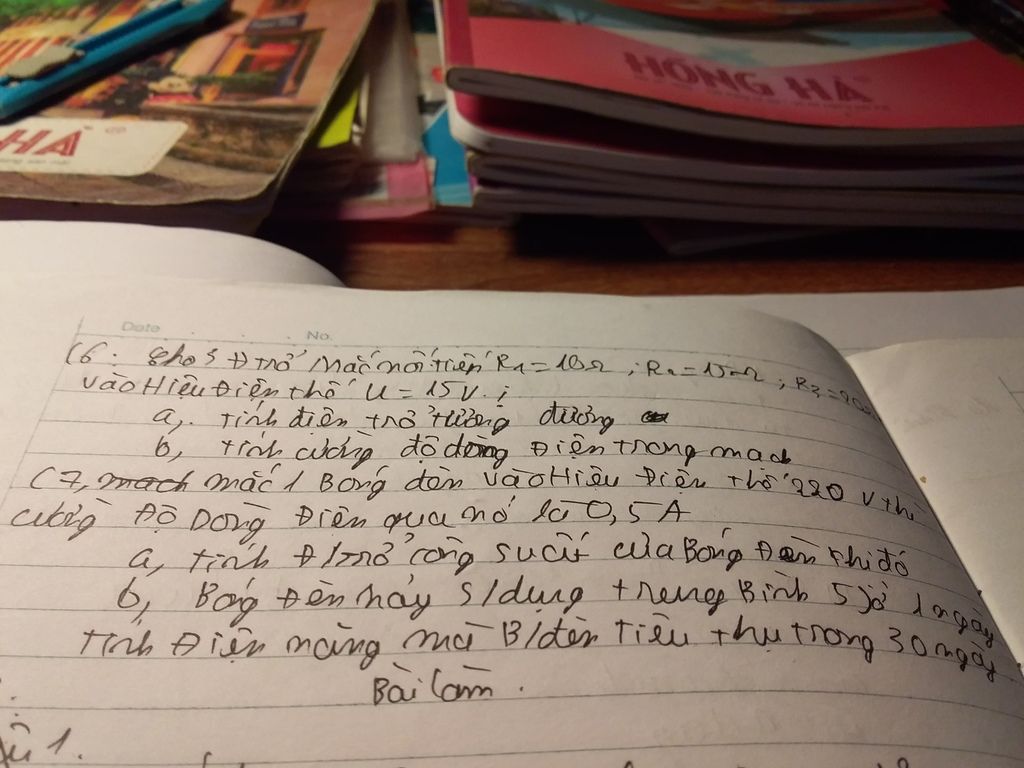 HÀ
HỒNG HÀ
Date No.
C6. Cho 3 Đ trở mắc nối tiếp R1 = 10Ω ; R2 = 15Ω ; R3 = 20Ω
vào Hiệu Điện thế U = 15V. ;
a, tính điện trở tương đương
b, tính cường độ dòng Điện trong mạch
C7, mắc 1 Bóng đèn vào Hiệu Điện thế 220 V thì
cường Độ Dòng Điện qua nó là 0,5A
a, tính Đ/trở công suất của Bóng Đèn khi đó
b, Bóng Đèn này S/dụng trung Bình 5 giờ 1 ngày
Tính Điện năng mà B/đèn Tiêu thụ trong 30 ngày
Bài Làm.
1.